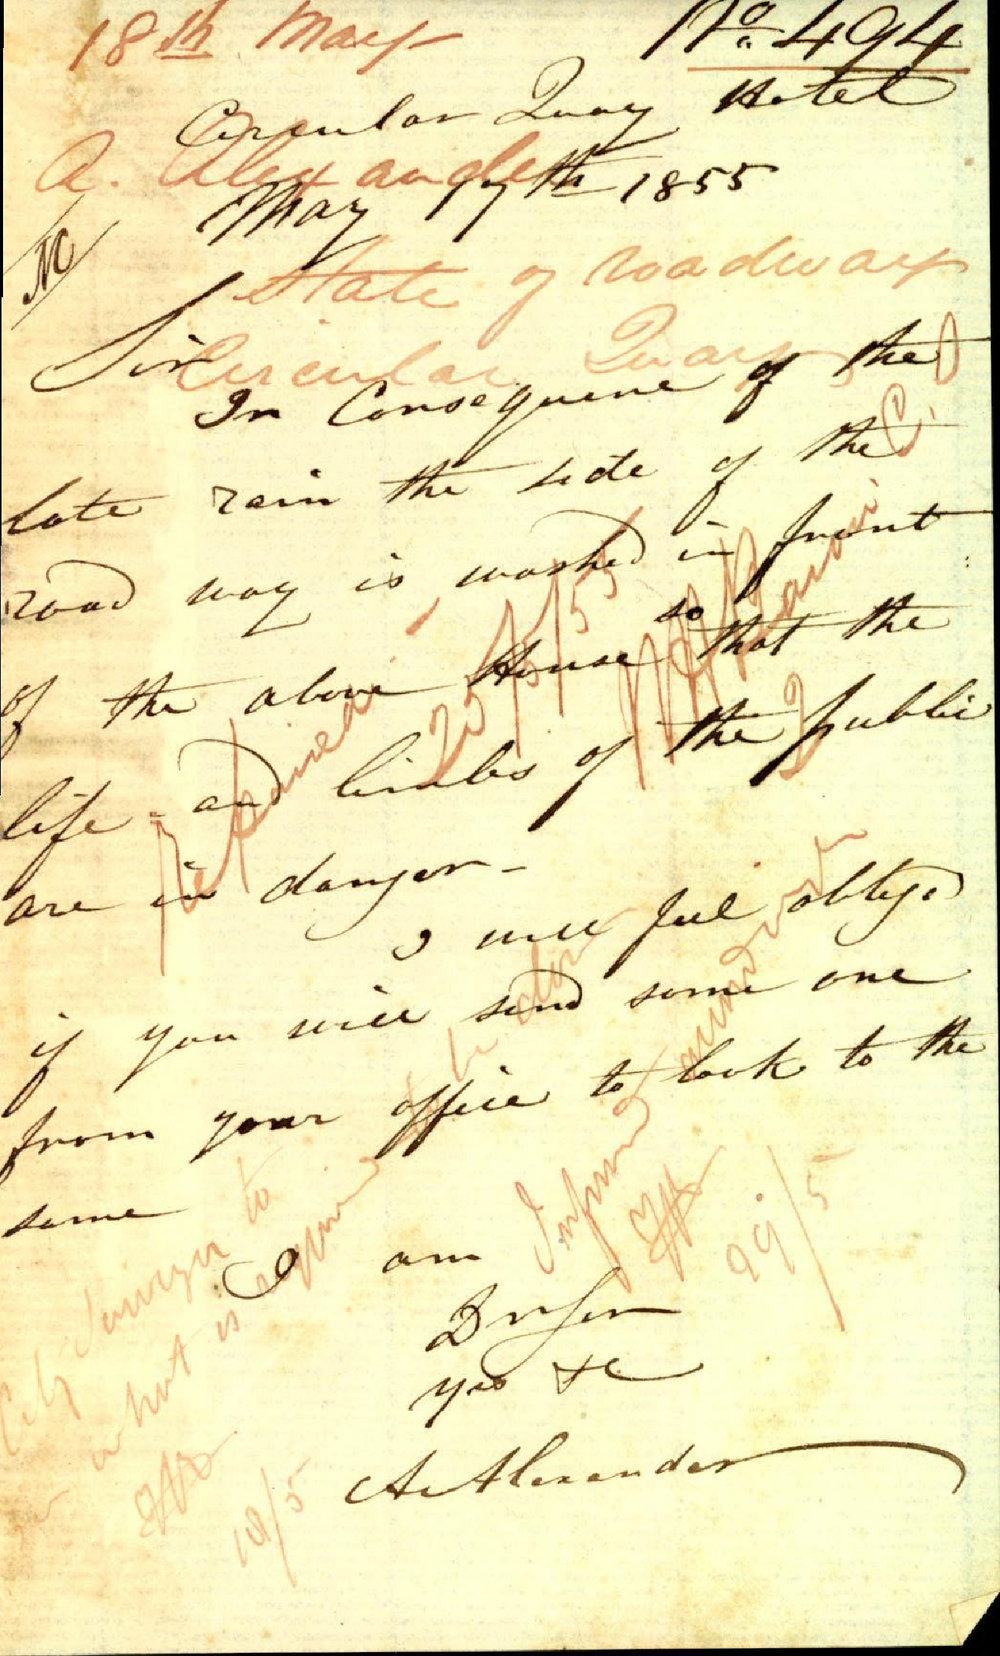 18th May
No. 494
Circular Quay Hotel
A. Alexander
May 17th 1855
State of roadway
Circular Quay
Sir
In Consequence of the
late rain the side of the
road way is washed in front
of the above House so that the
life and limbs of the public
are in danger -
I will feel oblig'd
if you will send some one
from your office to look to the
same
I am
Dr Sir
Yrs &c
A. Alexander
Repaired
20/5/55
City Surveyor to
what is
18/5
be done
Informed
29/5